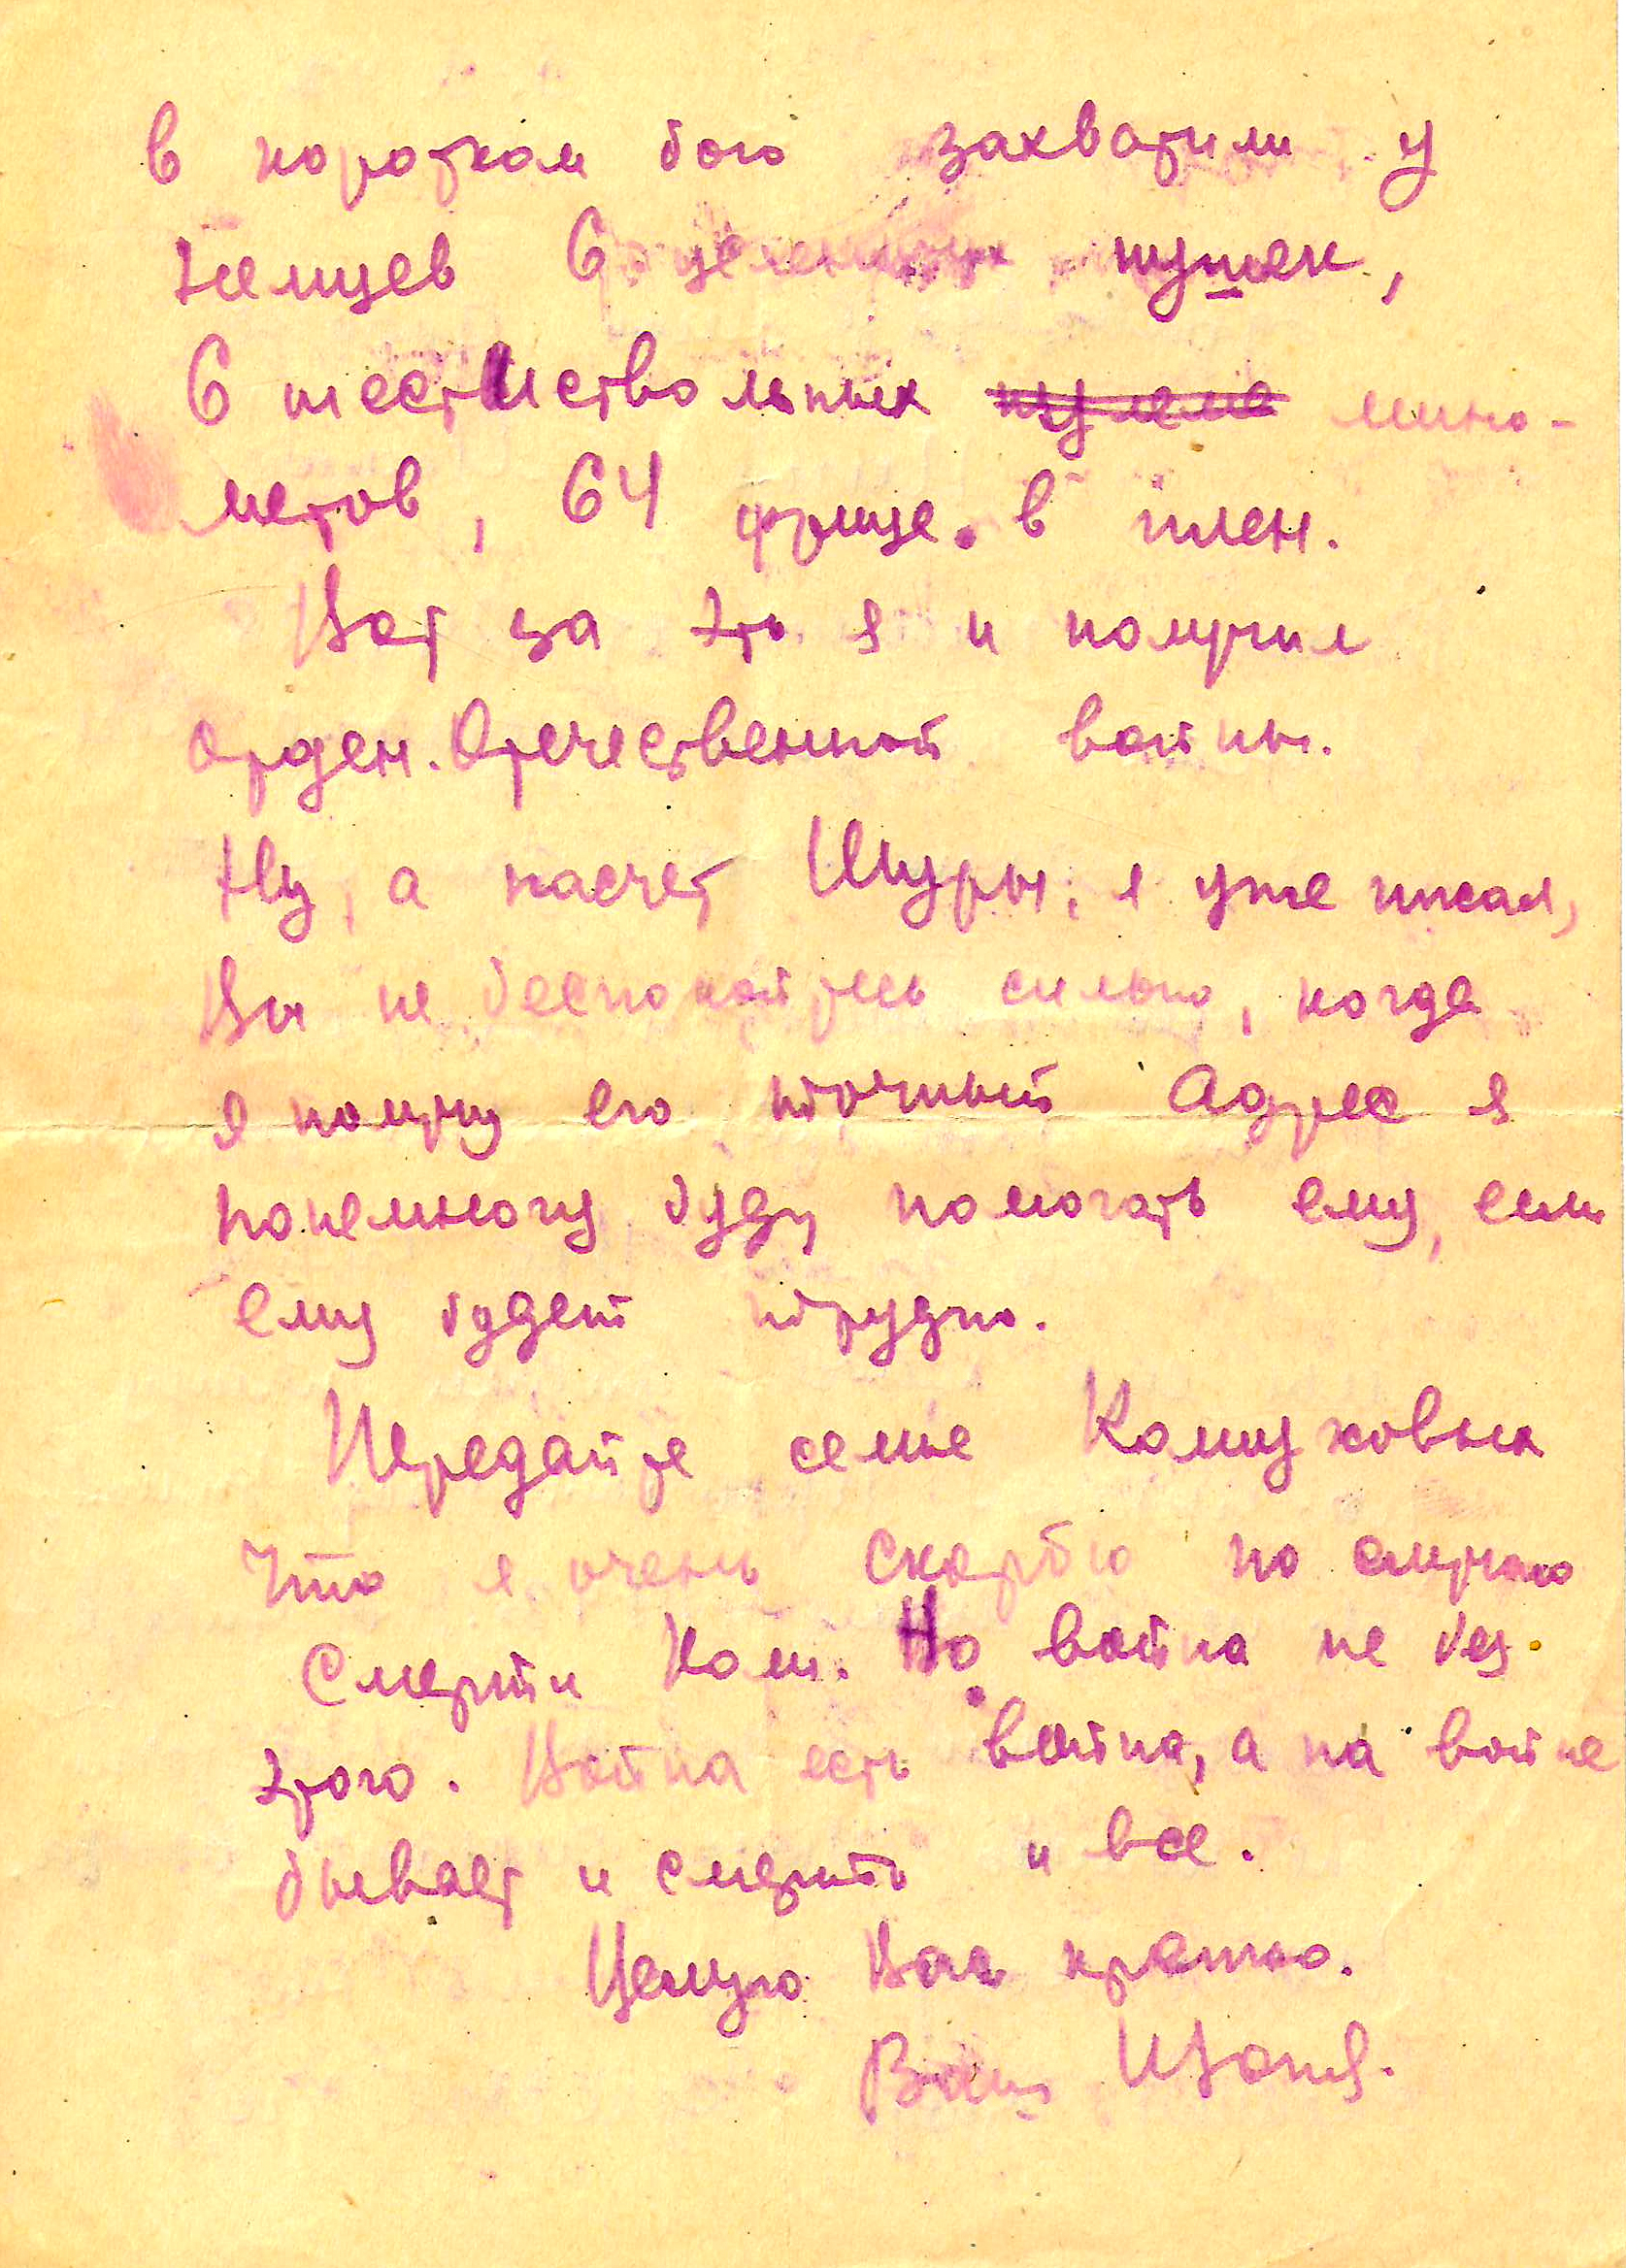 в коротком бою захватили у
немцев 6 уселенных пушек,
6 шестиствольных мино-
метов, 64 фрице. в плен.
Вот за это я и получил
Орден. Отечественной войны.
Ну, а насчет Шуры, я уже писал,
Вы не беспокойтесь сильно, когда
я получу его точный Адрес я
понемногу буду помогать ему, если
ему будет трудно.
Передайте семье
Что я очень скорблю по случаю
Смерти Кол. Но война не без
этого. Война есть война, а на войне
бывает и смерть и все.
Целую Вас крепко.
Ваш